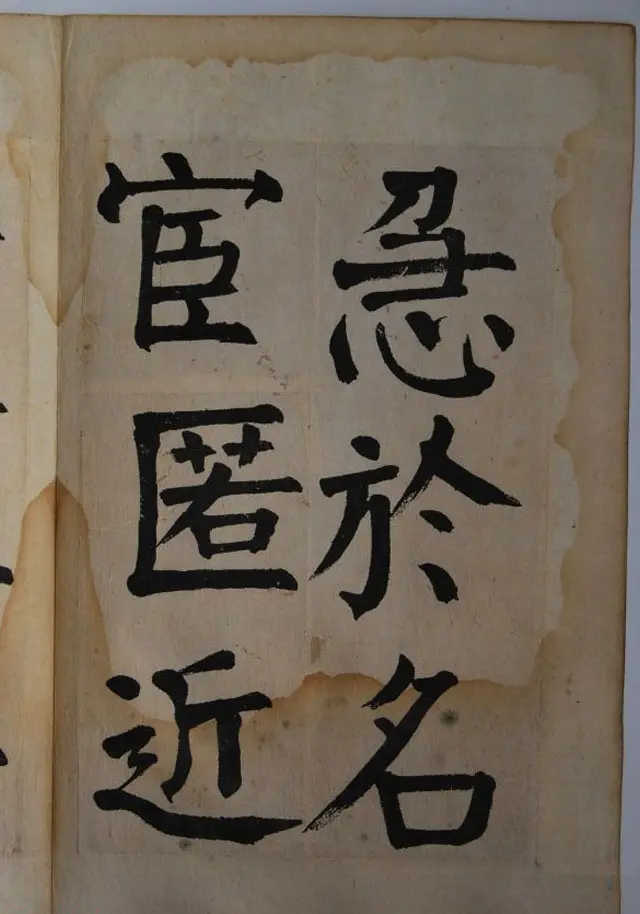 急於名
宦匿近